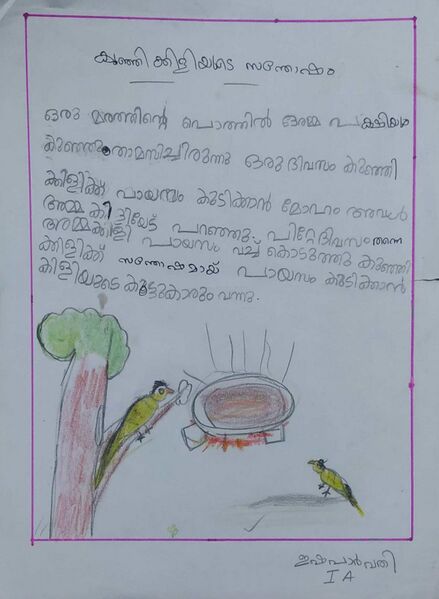 കുഞ്ഞിക്കിളിയുടെ സന്തോഷം
ഒരു മരത്തിന്റെ പൊത്തിൽ ഒരമ്മ പക്ഷിയും
കുഞ്ഞും താമസിച്ചിരുന്നു ഒരു ദിവസം കുഞ്ഞി
ക്കിളിക്ക് പായസം കുടിക്കാൻ മോഹം അവൾ
അമ്മ കിളിയോട് പറഞ്ഞു. പിറ്റേദിവസം തന്നെ
അമ്മക്കിളി പായസം വച്ച് കൊടുത്തു കുഞ്ഞി
ക്കിളിക്ക് സന്തോഷമായ് പായസം കുടിക്കാൻ
കിളിയുടെ കൂട്ടുകാരും വന്നു.
ഇഷപാർവതി
I A